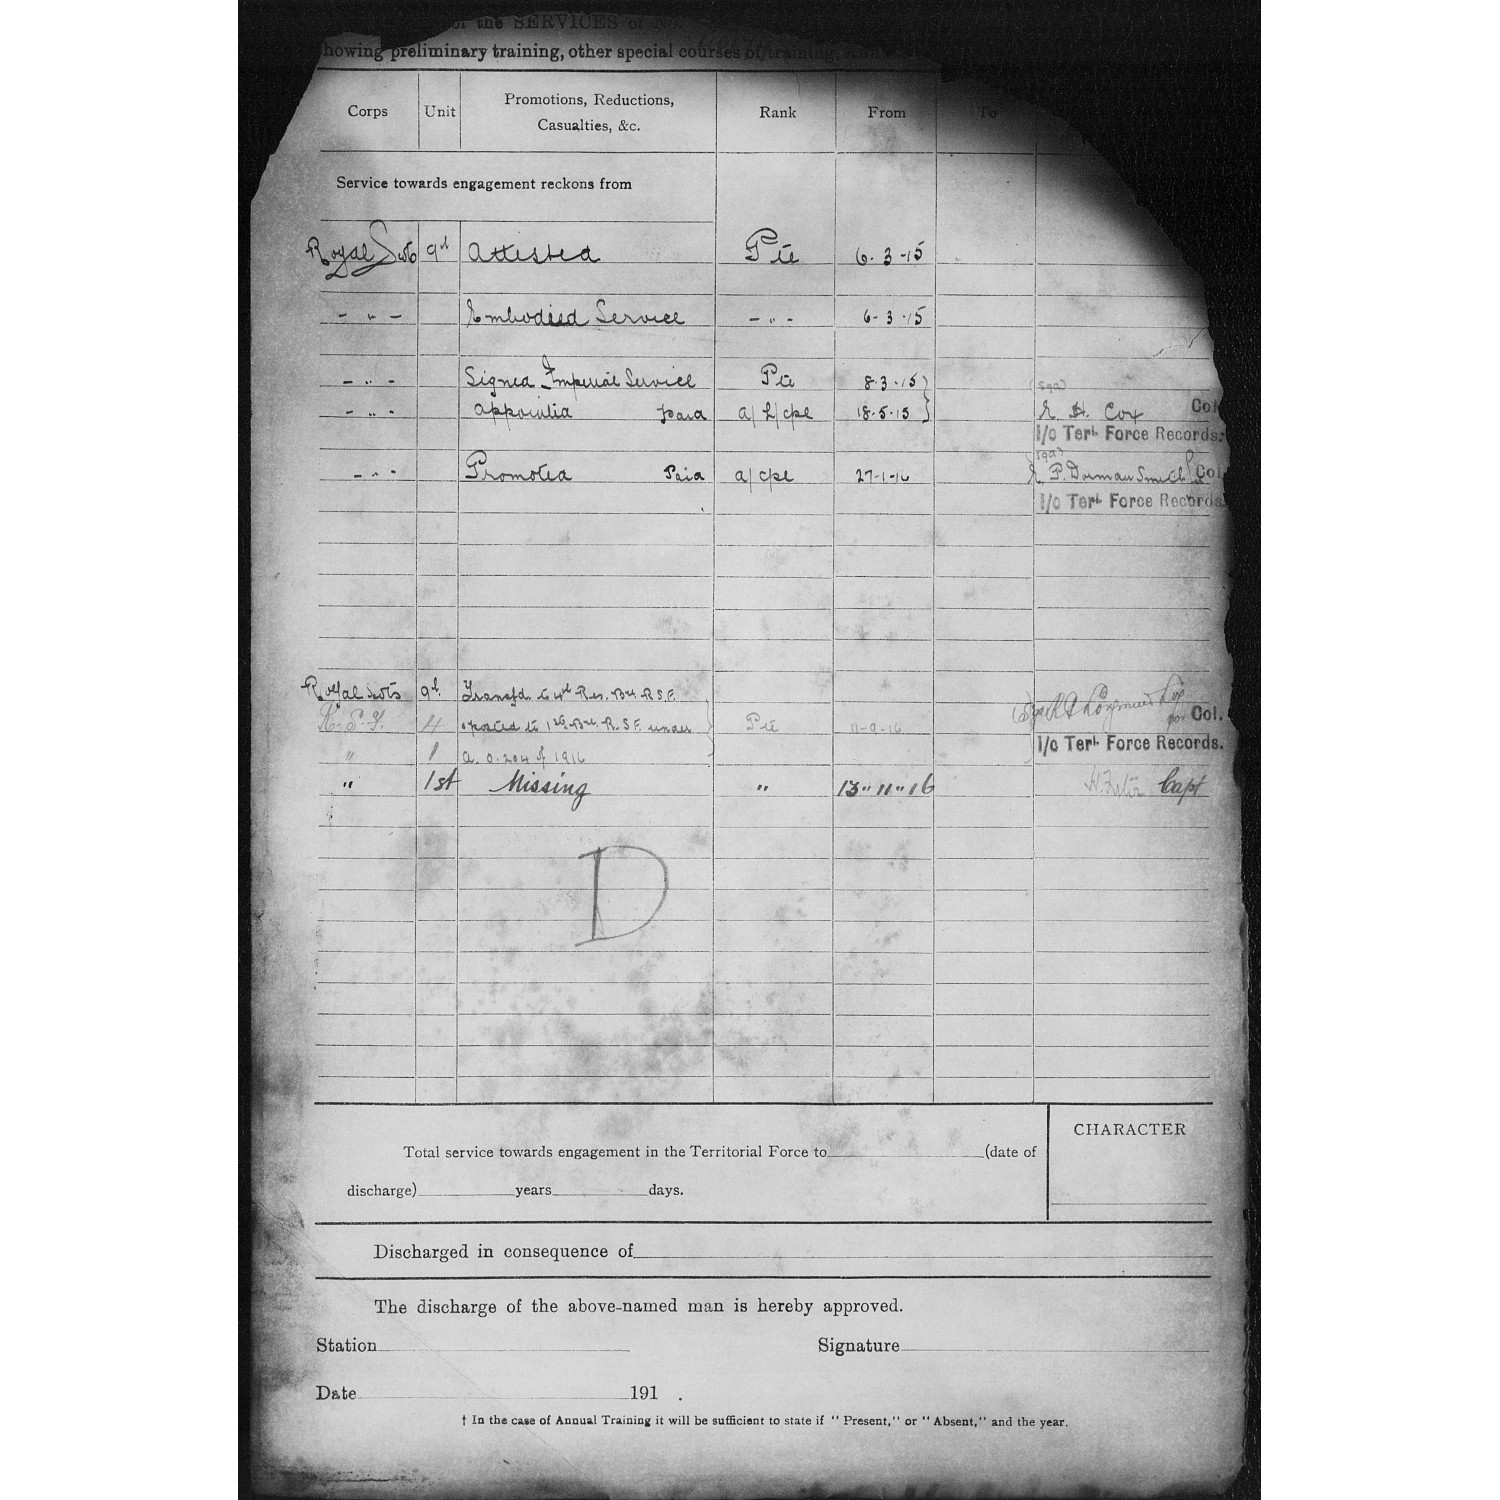 of the SERVICES of
howing preliminary training, other special courses of training,
Corps Unit Promotions, Reductions, Casualties, &c. Rank From To
Service towards engagement reckons from
Royal Scots 9th Attested Pte 6-3-15
- " - Embodied Service - " - 6-3-15
- " - Signed Imperial Service Pte 8-3-15 (Sgd)
- " - Appointed paid a/L/cpl 18-5-15 H. Cox Col
I/c Terl. Force Records.
(Sgd)
- " - Promoted Paid a/cpl 27-1-16 P. Dorman Smith Col
I/c Terl. Force Records.
Royal Scots 9th Transfd. to 4th Res. Bn. R.S.F.
R.S.F. 4 & posted to 1st Bn. R.S.F. under Pte 11-9-16 for Col.
" 1 A.O. 204 of 1916 I/c Terl. Force Records.
" 1st Missing " 13"11"16 Capt
D
CHARACTER
Total service towards engagement in the Territorial Force to (date of
discharge) years days.
Discharged in consequence of
The discharge of the above-named man is hereby approved.
Station Signature
Date 191 .
† In the case of Annual Training it will be sufficient to state if "Present," or "Absent," and the year.